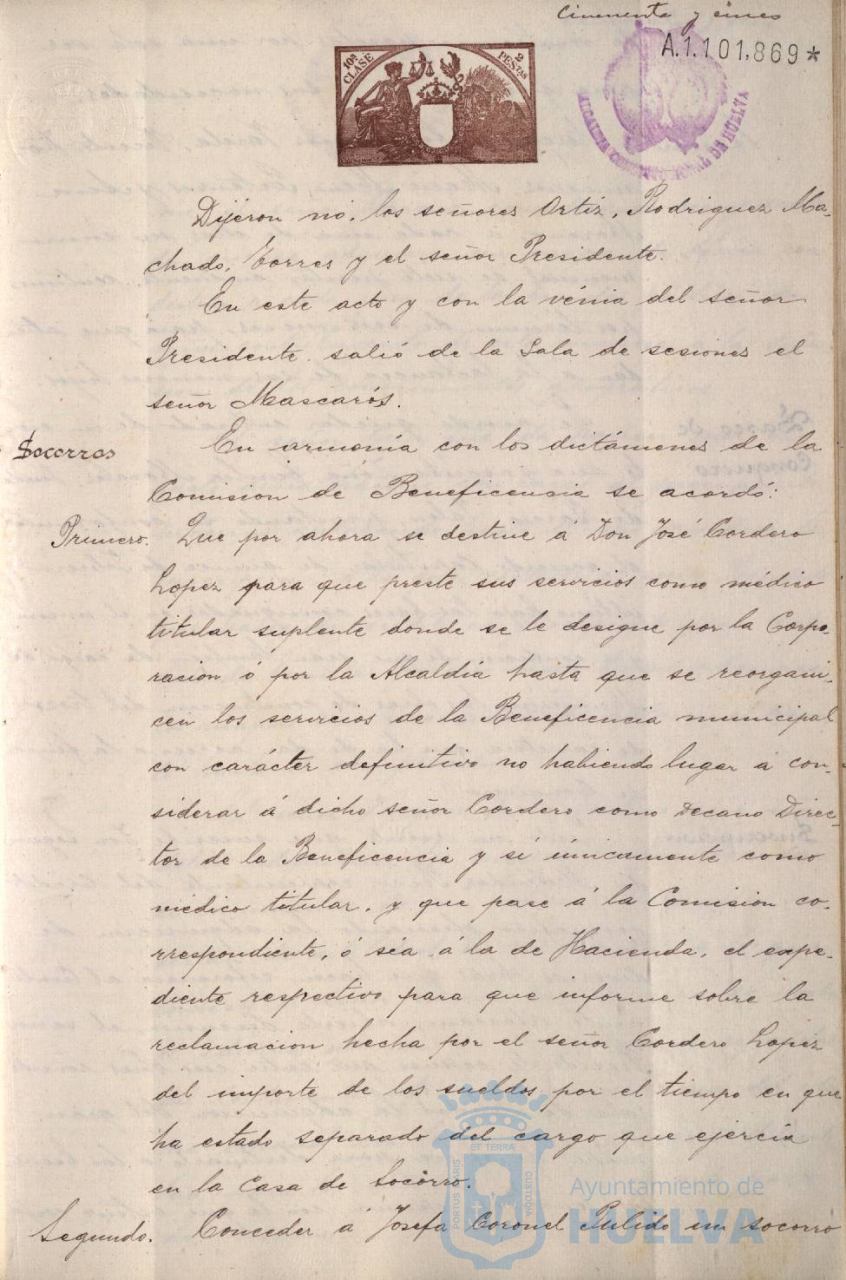 Cincuenta y cinco
A.1.101,869*
10ª CLASE
2 PESTAS
ALCALDIA CONSTITUCIONAL DE HUELVA
Dijéron no, los señores Ortiz, Rodriguez Ma-
chado, Torres y el señor Presidente.
En este acto y con la vénia del señor
Presidente salió de la Sala de sesiones el
señor Mascarós.
Socorros
En armonía con los dictámenes de la
Comision de Beneficensia se acordó:
Primero. Que por ahora se destine á Don José Cordero
Lopez para que preste sus servicios como médico
titular suplente donde se le desigue por la Corpo-
racion ó por la Alcaldía hasta que se reorgani-
cen los servicios de la Beneficencia municipal
con carácter definitivo no habiendo lugar á con-
siderar á dicho señor Cordero como Decano Direc-
tor de la Beneficencia y sí únicamente como
médico titular, y que pase á la Comision co-
rrespondiente, ó séa á la de Hacienda, el expe-
diente respectivo para que informe sobre la
reclamacion hecha por el señor Cordero Lopez
del importe de los sueldos por el tiempo en que
ha estado separado del cargo que ejercía
en la Casa de Socorro.
Segundo. Conceder á Josefa Coronel Pulido un socorro
PORTUS MARIS ET TERRÆ CUSTODIA
Ayuntamiento de
HUELVA